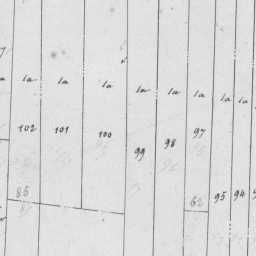 la la la la la la la la
102 101 100 99 98 97 95 94
85 62